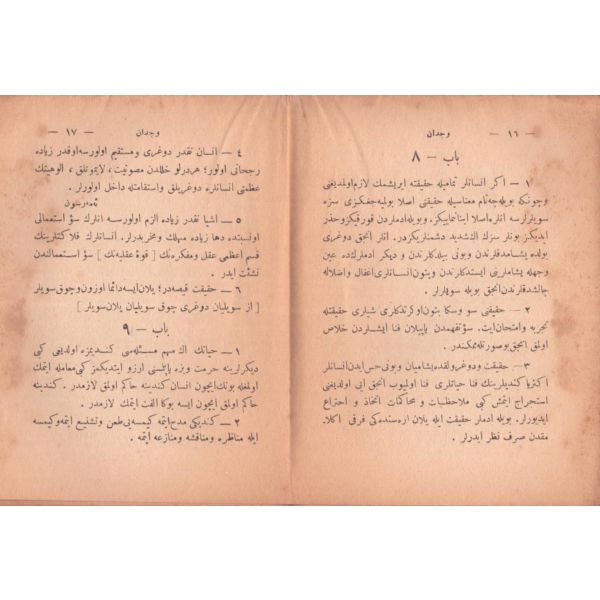 — ١٦ —
وجدان
باب — ٨
١ — اكر انسانلر تماميله حقيقته ايريشمك لازم اولديغنى
وچونكه بوله جه تام معناسيله حقيقتى اصلا بوليه جغكزى سزه
سويلرلرسه انلره اصلا اينانماييكز. وبويله ادملردن قورقيكز وحذر
ايديكز بونلر سزك اك شديد دشمنلريكزدر. انلر انجق دوغرى
يولده يشامه دقلرندن وبونى بيله دكلرندن و ديكر ادملرك ده عين
وجهله يشامارينى ايستدكلرندن وبتون انسانلرى اغفال واضلاله
چالشدقلرندن انجق بويله سويلرلر.
٢ — حقيقتى سو وسكا بتون اوكرتدكلرى شيلرى حقيقتله
تجربه وامتحان ايت. سؤ تفهمدن ياپيلان فنا ايشلردن خلاص
اولمق انجق بوصورتله ممكندر.
٣ — حقيقت ودوغرولقده يشاميان وبونى حس ايدن انسانلر
اكثريا كنديلرينك فنا حياتلرى فنا اوليوب انجق ايى اولديغنى
استخراج ايتمش كبى ملاحظات و محاكمات اتخاذ و اختراع
ايديورلر. بويله ادملر حقيقت ايله يلان اره سنده كى فرقى اكلا.
مقدن صرف نظر ايدرلر.
وجدان
— ١٧ —
٤ — انسان نقدر دوغرى ومستقيم اولورسه اوقدر زياده
رجحانى اولور؛ هر درلو خللدن مصونيت، لايموتلق، الوهيتك
عظمتى انسانلره دوغريلق واستقامتله داخل اولورلر.
ئه مه رسون
٥ — اشيا نقدر زياده الزم اولورسه انلرك سؤ استعمالى
اونسبتده دها زياده مهلك ومخربدرلر. انسانلرك فلاكتلرينك
قسم اعظمى عقل ومفكره نك [ قوهٔ عقليه نك ] سؤ استعمالندن
نشئت ايدر.
٦ — حقيقت قيصه در؛ يلان ايسه دائما اوزون وچوق سويلر
[ از سويليان دوغرى چوق سويليان يلان سويلر ]
باب — ٩
١ — حياتك اك مهم مسئله سى كنديمزه اولديغى كبى
ديكرلرينه حرمت ويره ياپلسنى ارزو ايتديكمز كبى معامله ايتمك
اولمغله بونك ايچون انسان كندينه حاكم اولمق لازمدر. كندينه
حاكم اولمق ايچون ايسه بوكا الفت ايتمك لازمدر.
٢ — كنديكى مدح ايتمه كيمسه يى طعن وتشنيع ايتمه وكيمسه
ايله مناظره ومناقشه ومنازعه ايتمه.